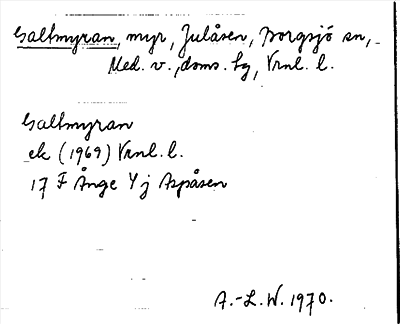 Galtmyran, myr, Julåsen, Borgsjö sn,
Med. v., doms. tg, Vrnl. l.
Galtmyran
ek (1969) Vrnl. l.
17 F Ånge Y j Aspåsen
A.-L. W. 1970.